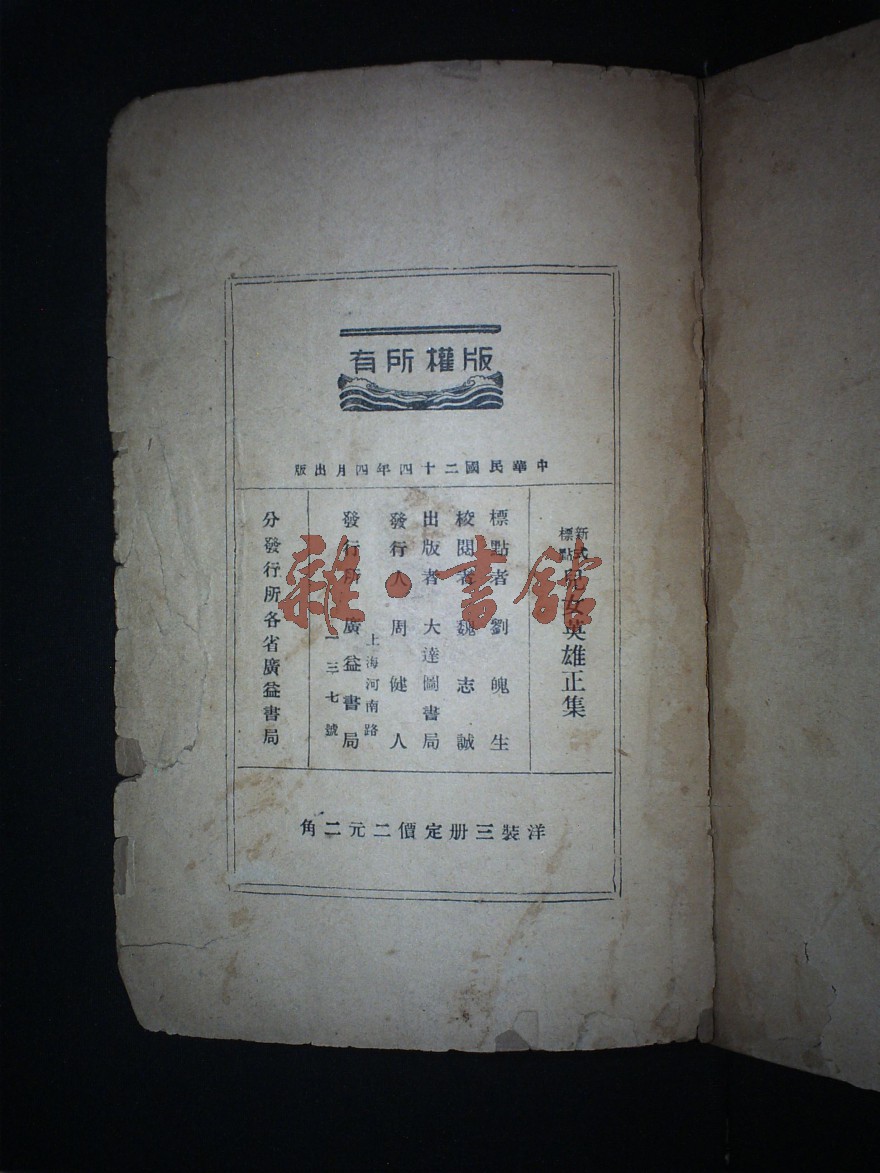 版權所有
中華民國二十四年四月出版
新式標點 兒女英雄正集
標點者 劉魄生
校閱者 魏志誠
出版者 大達圖書局
發行人 周健人
發行所 廣益書局
上海河南路
一三七號
分發行所各省廣益書局
洋裝三册定價二元二角
雜·書館